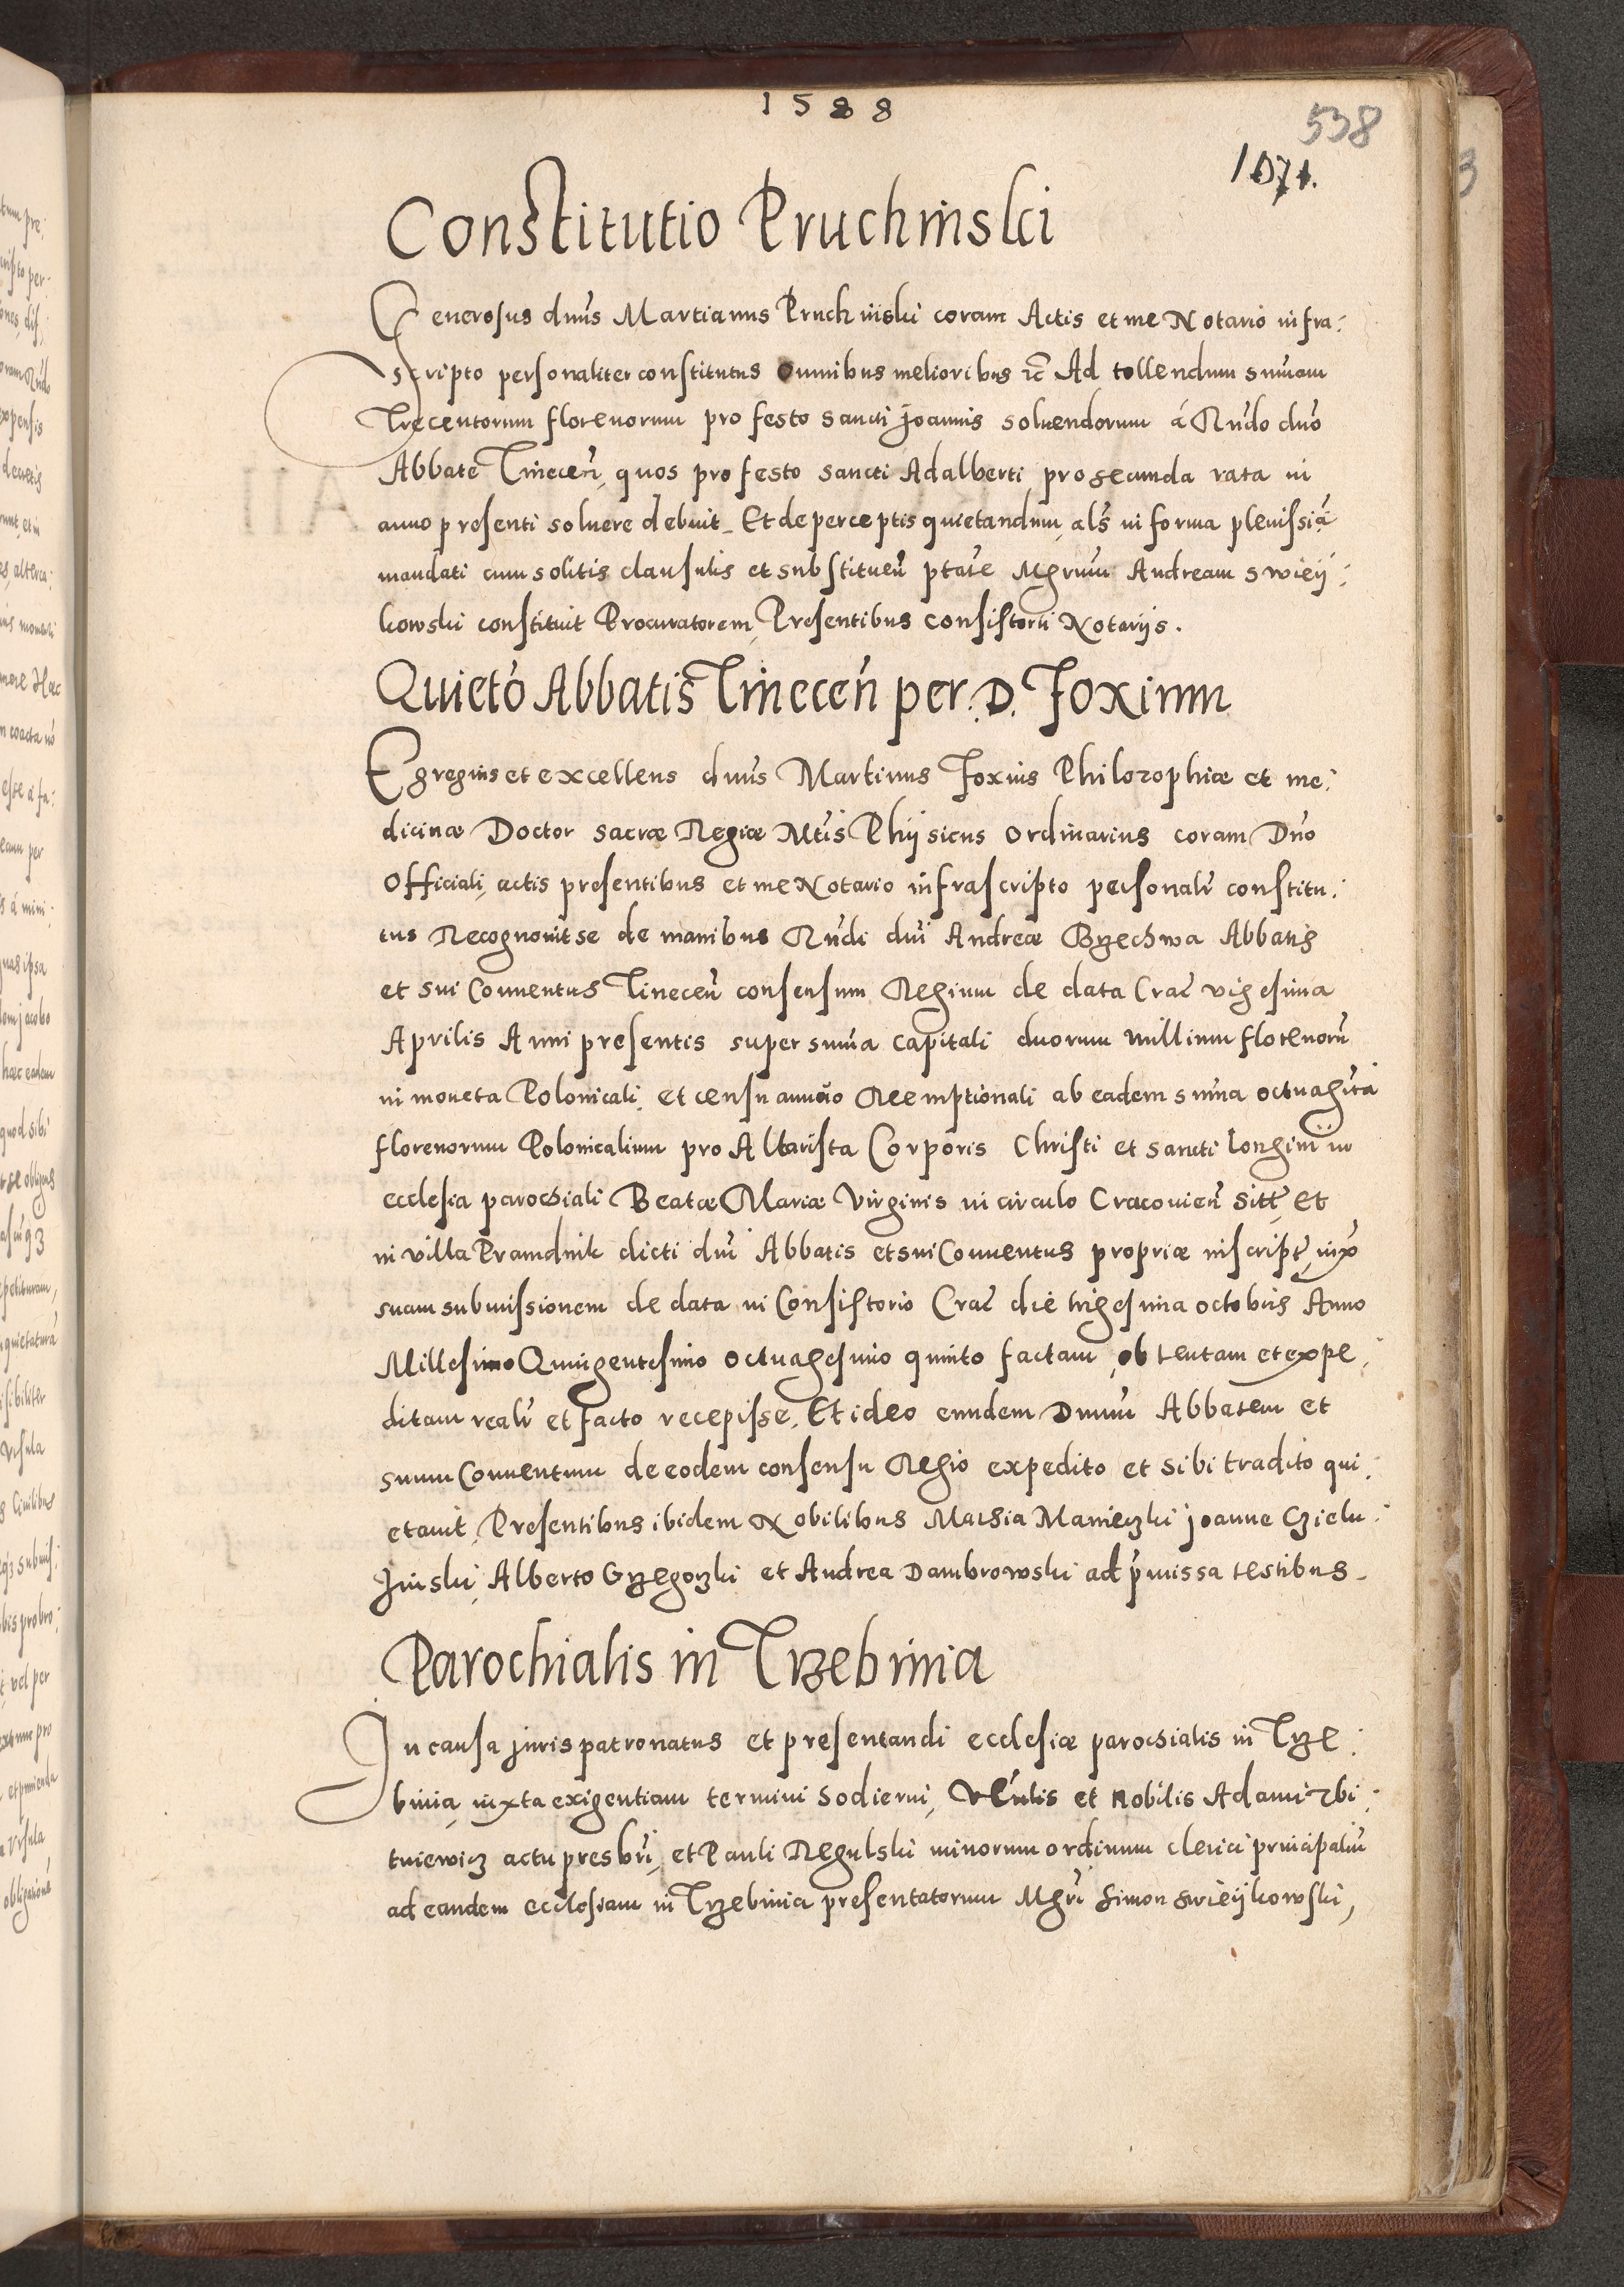 1588
538
1071.
Constitutio Pruchinski
Generosus dnus Martianus Pruchinski coram Actis et me Notario infra:
scripto personaliter constitutus omnibus melioribus etc Ad tollendum sumam
Trecentorum florenorum pro festo sancti Joannis soluendorum á Rndo dno
Abbate Tinecen, quos pro festo sancti Adalberti pro secunda rata in
anno presenti soluere debuit. Et de perceptis quietandum, als in forma plenissia
mandati cum solitis clausulis et substituen ptate Mgrum Andream Swiey:
kowski constituit Procuratorem, Presentibus Consistorii Notarijs.
Quieto Abbatis Tinecen per .D. Foxium
Egregius et excellens dnus Martinus Foxius Philozophiæ et me:
dicinæ Doctor sacræ Regiæ Mtis Phijsicus ordinarius coram Dno
Officiali, actis presentibus et me Notario infrascripto personalr constitu:
tus Recognouit se de manibus Rndi dni Andreæ Brzechwa Abbatis
et sui Conuentus Tinecen consensum Regium de data Crac vigesima
Aprilis Anni presentis super suma capitali duorum millium florenoru
in moneta Polonicali, et censu annuo Reemptionali ab eadem suma octuaginta
florenorum Polonicalium pro Altarista Corporis Christi et sancti Longini in
ecclesia parochiali Beatæ Mariæ Virginis in circulo Cracouien sitt, et
in villa Pramdnik dicti dni Abbatis et sui Conuentus propriæ inscript, iux
suam submissionem de data in Consistorio Crac die trigesima octobris Anno
Millesimo Quingentesimo octuagesimo quinto factam, obtentam et expe:
ditam realr et facto recepisse. Et ideo eundem Dnum Abbatem et
suum Conuentum de eodem consensu Regio expedito et sibi tradito qui:
etauit, Presentibus ibidem Nobilibus Mathia Manieczki Joanne Czielu:
zinski, Alberto Grzegorzki et Andrea Dambrowski ad pmissa testibus.
Parochialis in Trzebinia
In causa juris patronatus et presentandi ecclesiæ parochialis in Trze:
binia, iuxta exigentiam termini hodierni, Venlis et Nobilis Adami Zbi:
tniewicz actu presbri, et Pauli Regulski minorum ordinum clerici principaliu
ad eandem ecclesiam in Trzebinia presentatorum Mgri Simon Swieykowski,